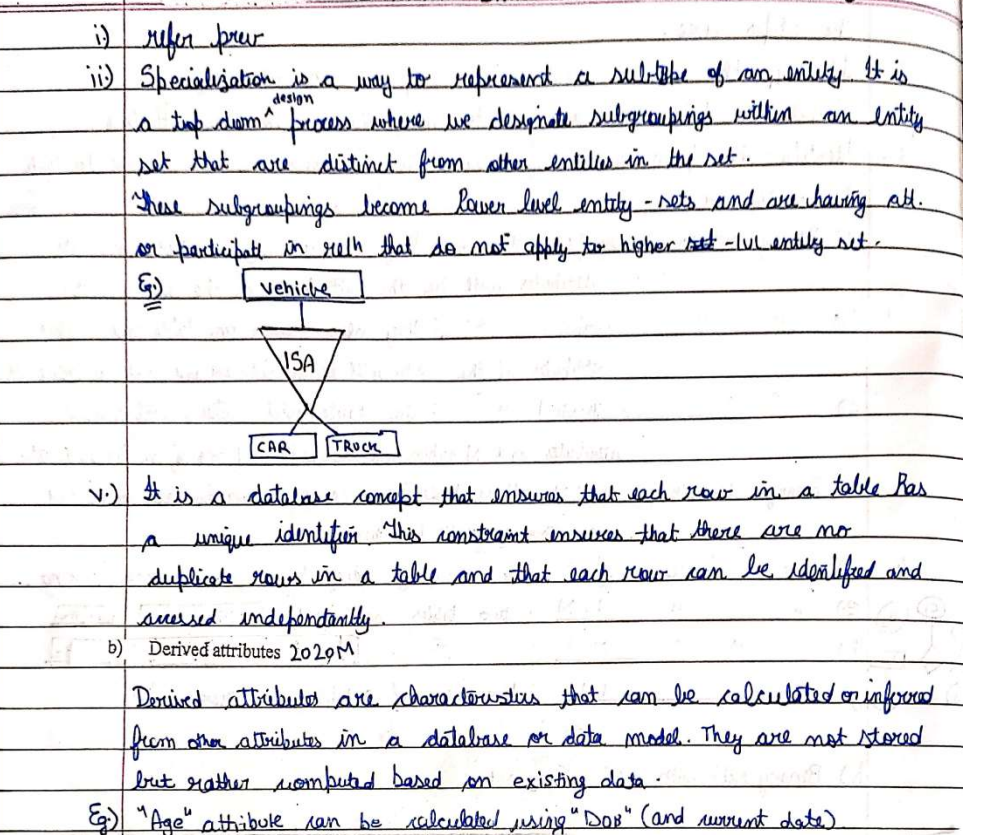 i) refer prev
ii) Specialization is a way to represent a subtype of an entity. It is
design
a top down ^ process where we designate subgroupings within an entity
set that are distinct from other entities in the set.
These subgroupings become lower level entity - sets and are having att.
or participate in reln that do not apply to higher -lvl entity set.
Eg.) Vehicle
ISA
CAR TRUCK
v.) It is a database concept that ensures that each row in a table has
a unique identifier. This constraint ensures that there are no
duplicate rows in a table and that each row can be identified and
accessed independantly.
b) Derived attributes 2020M
Derived attributes are characteristics that can be calculated or inferred
from other attributes in a database or data model. They are not stored
but rather computed based on existing data.
Eg.) "Age" attribute can be calculated using "DOB" (and current date)